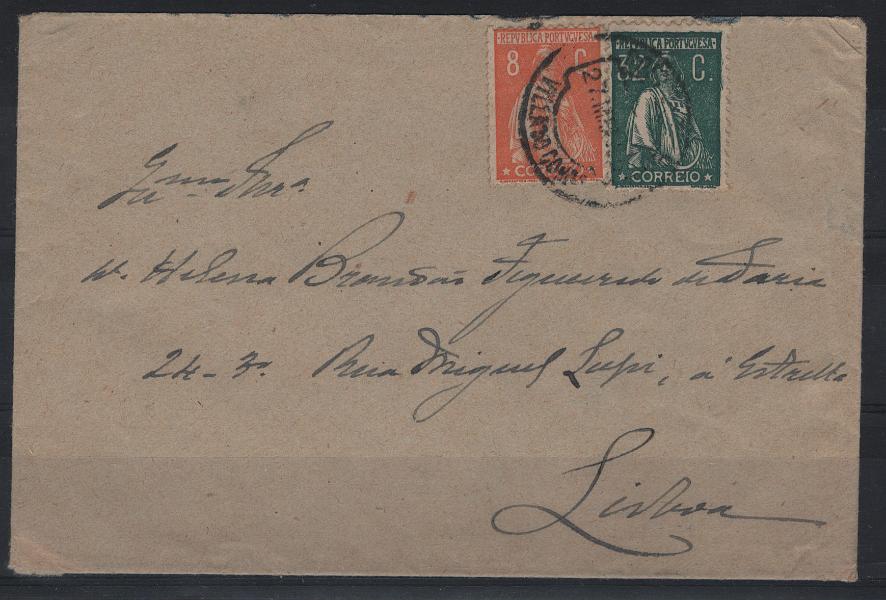 REPVBLICA PORTVGVESA
8 C.
CORREIO
REPVBLICA PORTVGVESA
32 C.
CORREIO
VILLA DO CONDE
27
Exma Snra
D. Helena Brandão Figueiredo de Faria
24-3º Rua Miguel Lupi, á Estrella
Lisboa